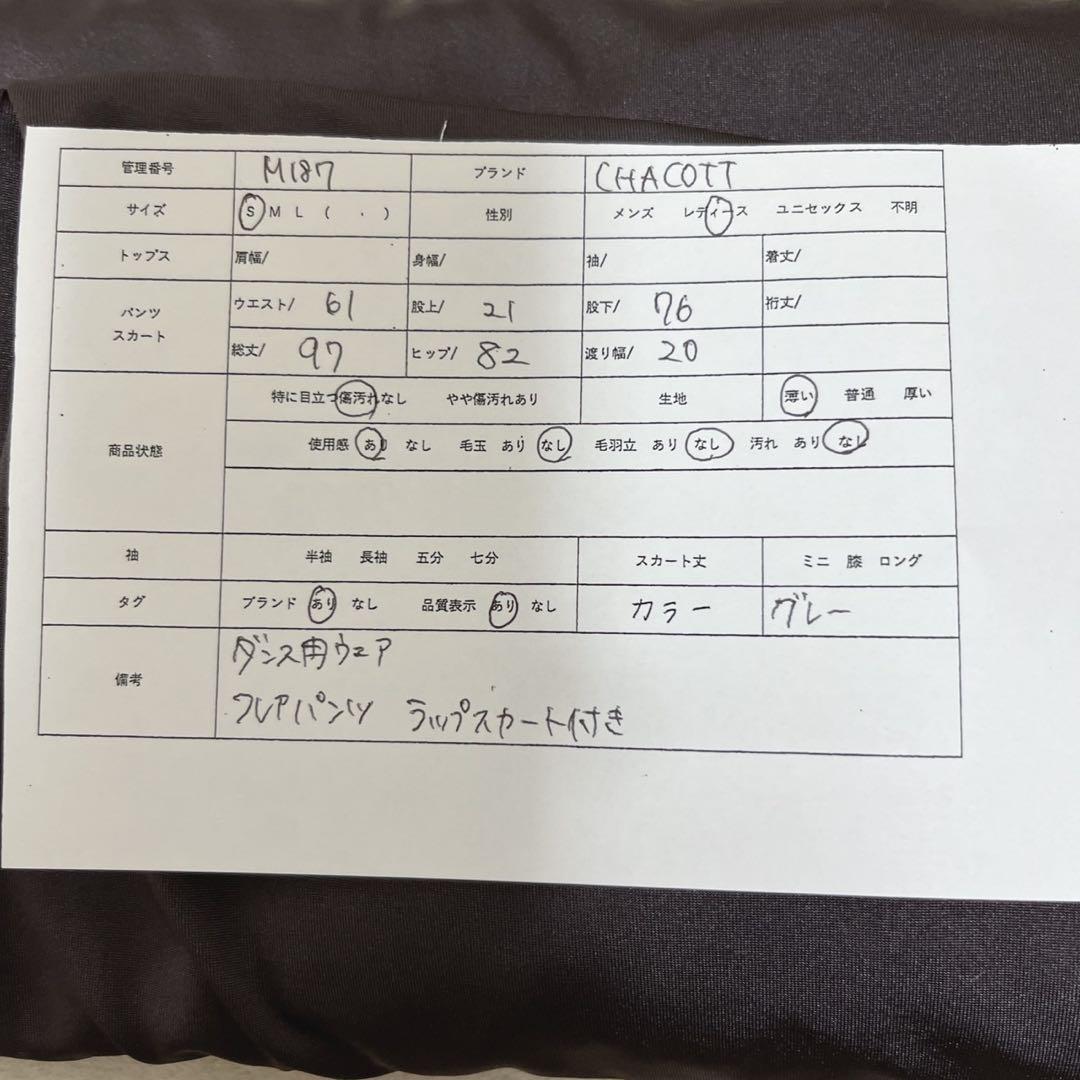 管理番号 M187 ブランド CHACOTT
サイズ S M L ( ・ ) 性別 メンズ レディース ユニセックス 不明
トップス 肩幅/ 身幅/ 袖/ 着丈/
パンツ スカート ウエスト/ 61 股上/ 21 股下/ 76 裄丈/
総丈/ 97 ヒップ/ 82 渡り幅/ 20
商品状態 特に目立つ傷汚れなし やや傷汚れあり 生地 薄い 普通 厚い
使用感 あり なし 毛玉 あり なし 毛羽立 あり なし 汚れ あり なし
袖 半袖 長袖 五分 七分 スカート丈 ミニ 膝 ロング
タグ ブランド あり なし 品質表示 あり なし カラー グレー
備考 ダンス用ウェア
フレアパンツ ラップスカート付き